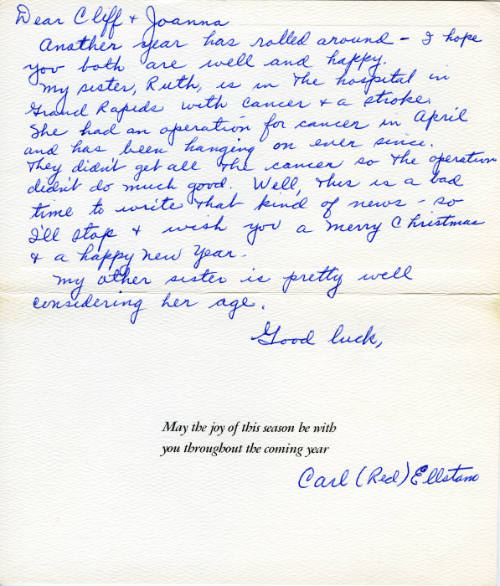 Dear Cliff + Joanna
Another year has rolled around - I hope
you both are well and happy.
My sister, Ruth, is in the hospital in
Grand Rapids with cancer + a stroke.
She had an operation for cancer in April
and has been hanging on ever since.
They didn't get all the cancer so the operation
didn't do much good. Well, this is a bad
time to write that kind of news - so
I'll stop + wish you a Merry Christmas
+ a happy New Year.
My other sister is pretty well
considering her age.
Good luck,
May the joy of this season be with
you throughout the coming year
Carl (Red) Ellstam